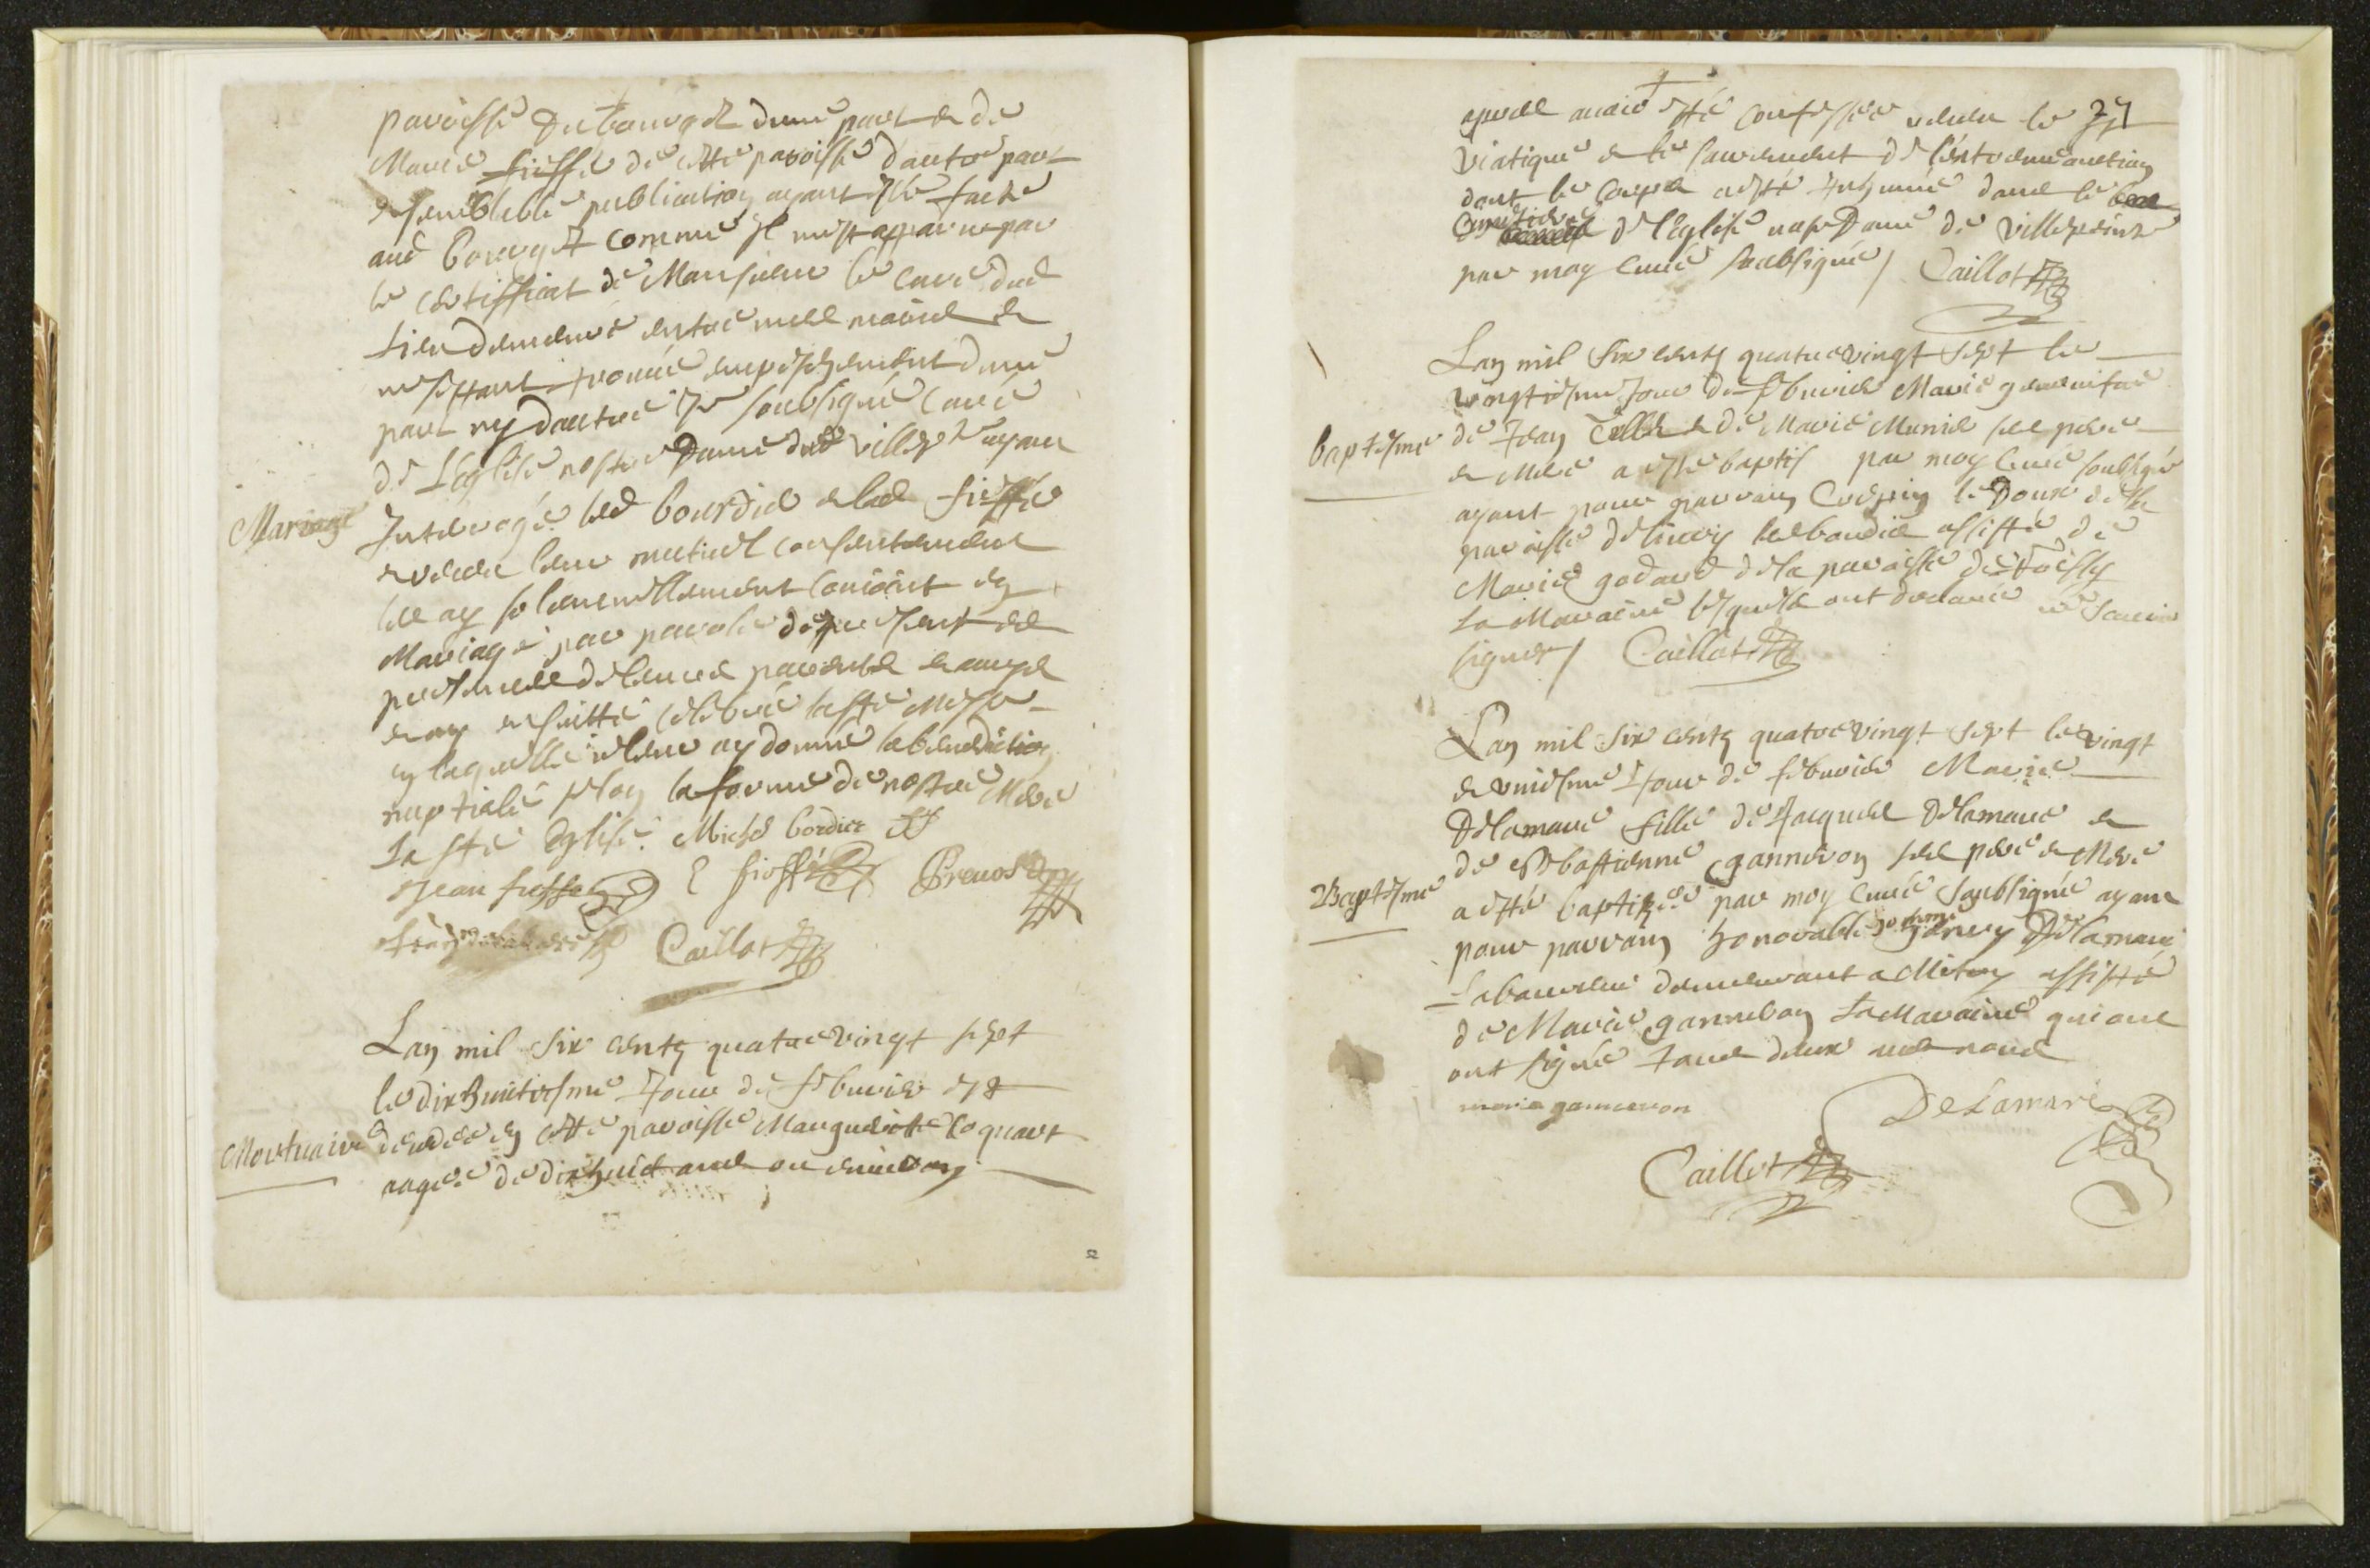 paroisse du bourget dune part et de
Marie fieffé de cette paroisse dautre part
et semblable publication ayant esté faite
aud bourget comme il mest apparu par
le certifficat de Monsieur le curé dud
lieu demeuré entre mes mains et
ne sestant trouvé empeschement dune
part ny dautre Je soubsigné curé
de Leglise nostre Dame dud ayant
Mariage
Interogé led bourdier et lad fieffée
et receu leur mutuel consentement
les ay solennellement conioint en
Mariage par parole de present et
presence de leurs parents et amys
et ay ensuitte celebré la ste Messe
en laquelle ie leur ay donné la benediction
nuptiale selon la forme de nostre Mere
La ste Eglise. Michel bordier
Jean fieffe fieffé Prevost
Caillot
Lan mil six cents quatre vingt sept
le dixhuitiesme Jour de febvrier est
Mortuaire
decedée en cette paroisse Marguerite Coquart
aagée de dixhuict ans ou environ
apres avoir esté confessée receu le st 7
viatique et le sacrement de lextremeonction
dont le corps a esté Inhumé dans le
cimetiere de leglise nostre Dame de villepeinte
par moy curé soubsigné / Caillot
Lan mil six cents quatre vingt sept le
vingtiesme Jour de febvrier Marie genevifve
Baptesme
de Jean et de Marie Munier ses pere
et Mere a esté baptis par moy curé soubsigné
ayant pour parrain Crespin le Doux de la
paroisse de assisté de
Marie godard de la paroisse de Roissy
La Maraine lesquels ont declaré ne scavoir
signer / Caillot
Lan mil six cents quatre vingt sept le vingt
et uniesme Jour de febvrier Marie
Delamare fille de Jacques Delamare et
de Sebastienne ganneron ses pere et Mere
Baptesme
a esté baptizée par moy curé soubsigné ayant
pour parrain honorable homme Delamare
Laboureur demeurant a Mitry assisté
de Marie ganneron La Maraine qui ont
ont signé tous deux avec nous
marie ganneron
DeLamare
Caillot